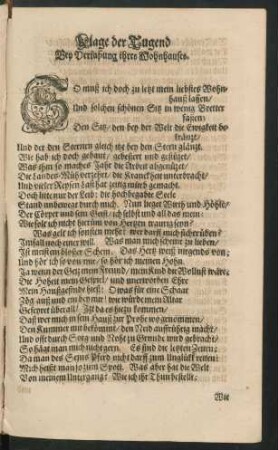 Klage der Tugend
Bey Verlassung ihres Wohnhauses.
SO muß ich doch zu letzt mein liebstes Wohn-
hauß lassen/
Und solchen schönen Sitz in wenig Bretter
fassen;
Den Sitz/ den bey der Welt die Ewigkeit be-
kräntzt/
Und der den Sternen gleich itzt bey den Stern gläntzt.
Wie hab ich doch gebaut/ gebessert und gestützet/
Was ihm so manches Jahr die Arbeit abgenützet/
Die Landes-Müh verzehrt/ die Kranckheit unterbracht/
Und vieler Reysen Last hat zeitig mürb gemacht.
Doch litte nur der Leib: die hochbegabte Seele
Stand unbewegt durch mich. Nun lieget Wirth und Höhle/
Der Cörper und sein Geist/ ich selbst und all das mein:
Wie solt ich nicht hierum von Hertzen traurig seyn?
Was gelt ich sonsten mehr? wer darff mich hier üben?
Im fall noch einer will. Was man mich scheint zu lieben/
Ist meist ein blosser Schein. Das Hertz weiß nirgends von;
Und hör ich so von mir/ so hör ich meinen Hohn.
Ja wenn der Geitz mein Freund/ mein Kind die Wollust wäre;
Die Hoheit mein Gespiel/ und unerworben Ehre
Mein Haußgesinde hieß: O was für eine Schaar
Zög auß und ein bey mir! wie würde mein Altar
Gefeyret überall/ Itzt da es hiezu kommen/
Daß wer mich in sein Hauß zur Probe wo genommen/
Den Kummer mit bekömmt/ den Neid auffrührig macht/
Und offt durch Sorg und Noht zu Grunde wird gebracht/
So hägt man mich nicht gern. Es sind die letzten Zeiten;
Da man des Sejus Pferd nicht darff zum Unglück reiten:
Mich heißt man jo zum Spott. Was aber hat die Welt
Von meinem Untergang? Wie ich ihr Thun bestellt:
Wie